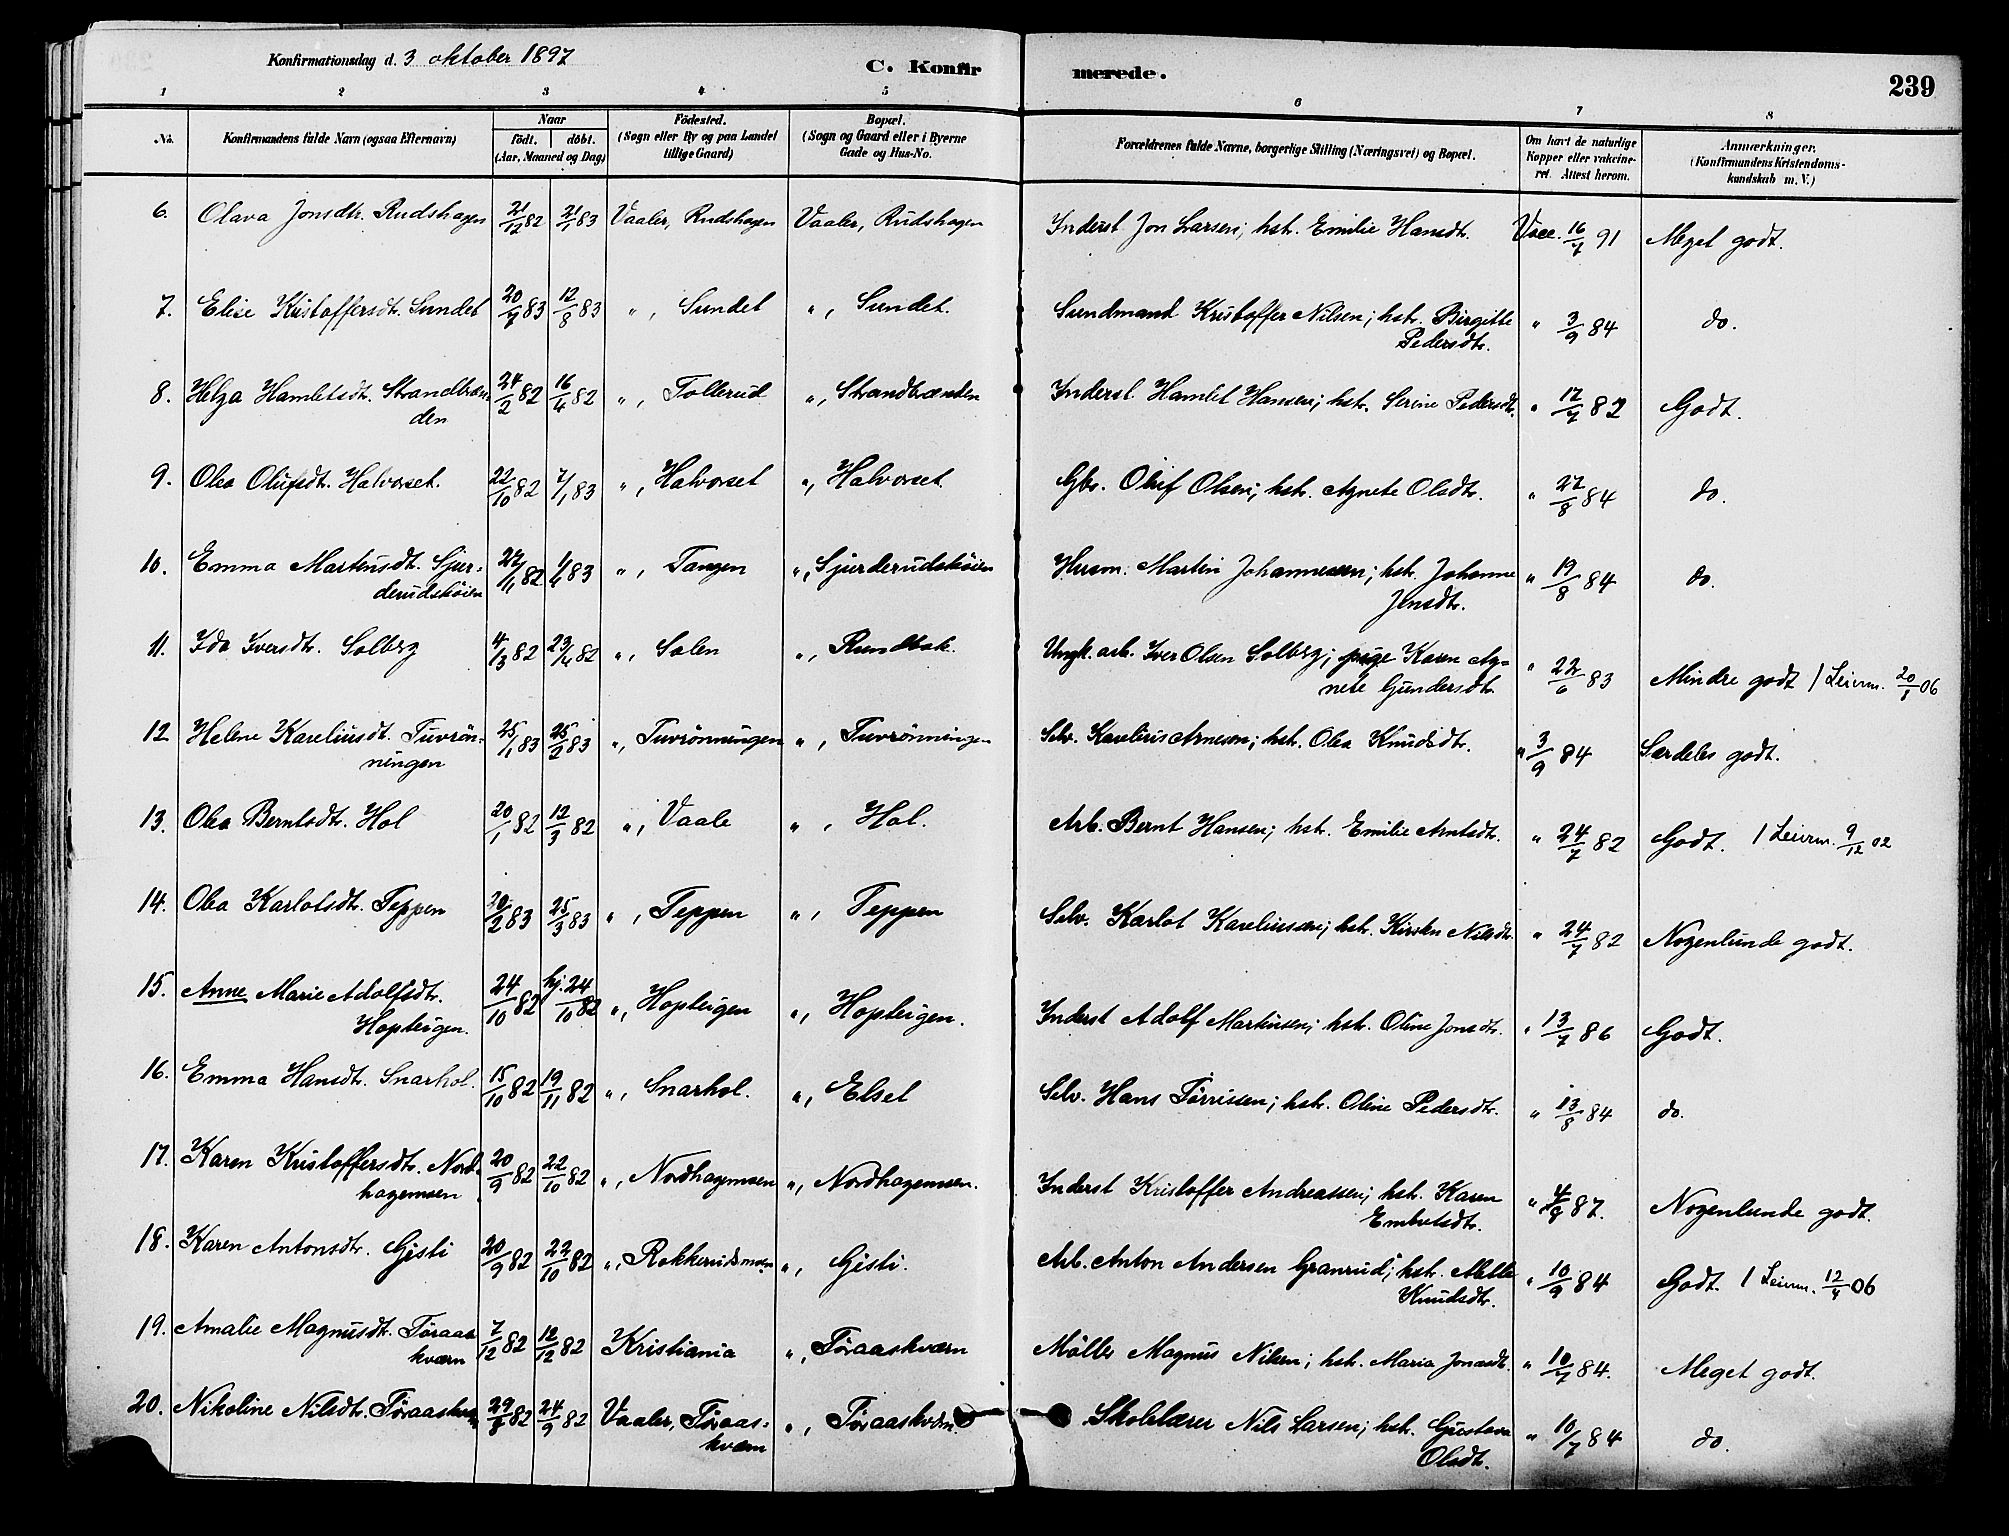 Konfirmationsdag d. 3 oktober 1897
C. Konfirmerede.
239
1 2 3 4 5 6 7 8
No.
Konfirmandens fulde Navn (ogsaa Efternavn)
Naar
födt. döbt.
(Aar, Maaned og Dag)
Födested.
(Sogn eller By og paa Landet
tillige Gaard)
Bopæl.
(Sogn og Gaard eller i Byerne
Gade og Hus-No.
Forældrenes fulde Navne, borgerlige Stilling (Næringsvei) og Bopæl.
Om havt de naturlige
Kopper eller vakcine-
ret. Attest herom.
Anmærkninger.
(Konfirmandens Kristendoms-
kundskab m. V.)
6. Olava Jonsdtr. Rudshagen 21/12 82 21/1 83 Vaaler, Rudshagen Vaaler, Rudshagen Inderst Jon Larsen; hst. Emilie Hansdt. Vacc. 16/7 91 Meget godt.
7. Elise Kristoffersdt. Sundet 20/7 83 12/8 83 ", Sundet ", Sundet. Sundmand Kristoffer Nilsen; hst. Birgitte " 3/9 84 do.
Pedersdtr.
8. Helga Hamletsdt. Strandbræn- 24/2 82 16/4 82 ", Tollerud ", Strandbrænden Inderst Hamlet Hansen; hst. Serine Pedersdt. " 17/7 82 Godt.
den
9. Olea Olufsdt. Halvorset. 22/10 82 7/1 83 ", Halvorset ", Halvorset Gbr. Oluf Olsen; hst. Agnete Olsdtr. " 27/8 84 do.
10. Emma Martinsdt. Sjur- 27/11 82 1/4 83 ", Tangen ", Sjurderudsköien Husm. Martin Johannessen; hst. Johanne " 19/8 84 do.
derudsköien
Jensdtr.
11. Ida Iversdtr. Solberg 4/3 82 23/4 82 ", Solen ", Rundbak. Ungk. arb. Iver Olsen Solberg; pige Karen Ag- " 22/6 83 Mindre godt / Leierm. 20/1 06
nete Gundersdtr.
12 Helene Kareliusdt. Tuvrön- 25/1 83 25/2 83 ", Tuvrönningen ", Tuvrönningen Selv. Karelius Arnesen; hst. Olea Knudsdtr. " 3/9 84 Særdeles godt.
ningen
13. Olea Berntsdtr. Hol 20/1 82 12/3 82 ", Vaale ", Hol. Arb. Bernt Hansen; hst. Emilie Arntsdt. " 24/7 82 Godt. / Leierm. 9/12 02
14. Olea Karlotsdtr. Teppen 20/2 83 25/3 83 ", Teppen ", Teppen Selv. Karlot Kareliussen; hst. Kirsten Nilsdt. " 24/7 82 Nogenlunde godt.
15. Anne Marie Adolfsdtr. 24/10 82 hj. 24/10 82 ", Hopteigen ", Hopteigen. Inderst Adolf Martinsen; hst. Oline Jonsdtr. " 13/7 86 Godt.
Hopteigen.
16. Emma Hansdt. Snarhol. 15/10 82 19/11 82 ", Snarhol. ", Elset Selv. Hans Tørrissen; hst. Oline Pedersdtr. " 13/8 84 do.
17. Karen Kristoffersdtr. Nord- 20/9 82 22/10 82 ", Nordhagemoen ", Nordhagemoen. Inderst Kristoffer Andreassen; hst. Karen " 4/8 87. Nogenlunde godt.
hagemoen
Embretsdtr.
18. Karen Antonsdtr. Gjesti 20/9 82 22/10 82 ", Rokkerudsmoen ", Gjesti. Arb. Anton Andersen Granrud; hst. Mette " 10/9 84 Godt. / Leierm. 12/4 06
Knudsdtr.
19. Amalie Magnusdt. Töraas 7/12 82 12/12 82 Kristiania ", Töraaskværn Möller Magnus Nilsen; hst. Maria Jonasdt. " 10/7 84. Meget godt.
kværn
20. Nikoline Nilsdtr. Töraaskværn 29/8 82 24/9 82 Vaaler, Töraas- ", Töraaskværn. Skolelærer Nils Larsen; hst. Gustava " 10/7 84 do.
kværn
Olsdt.